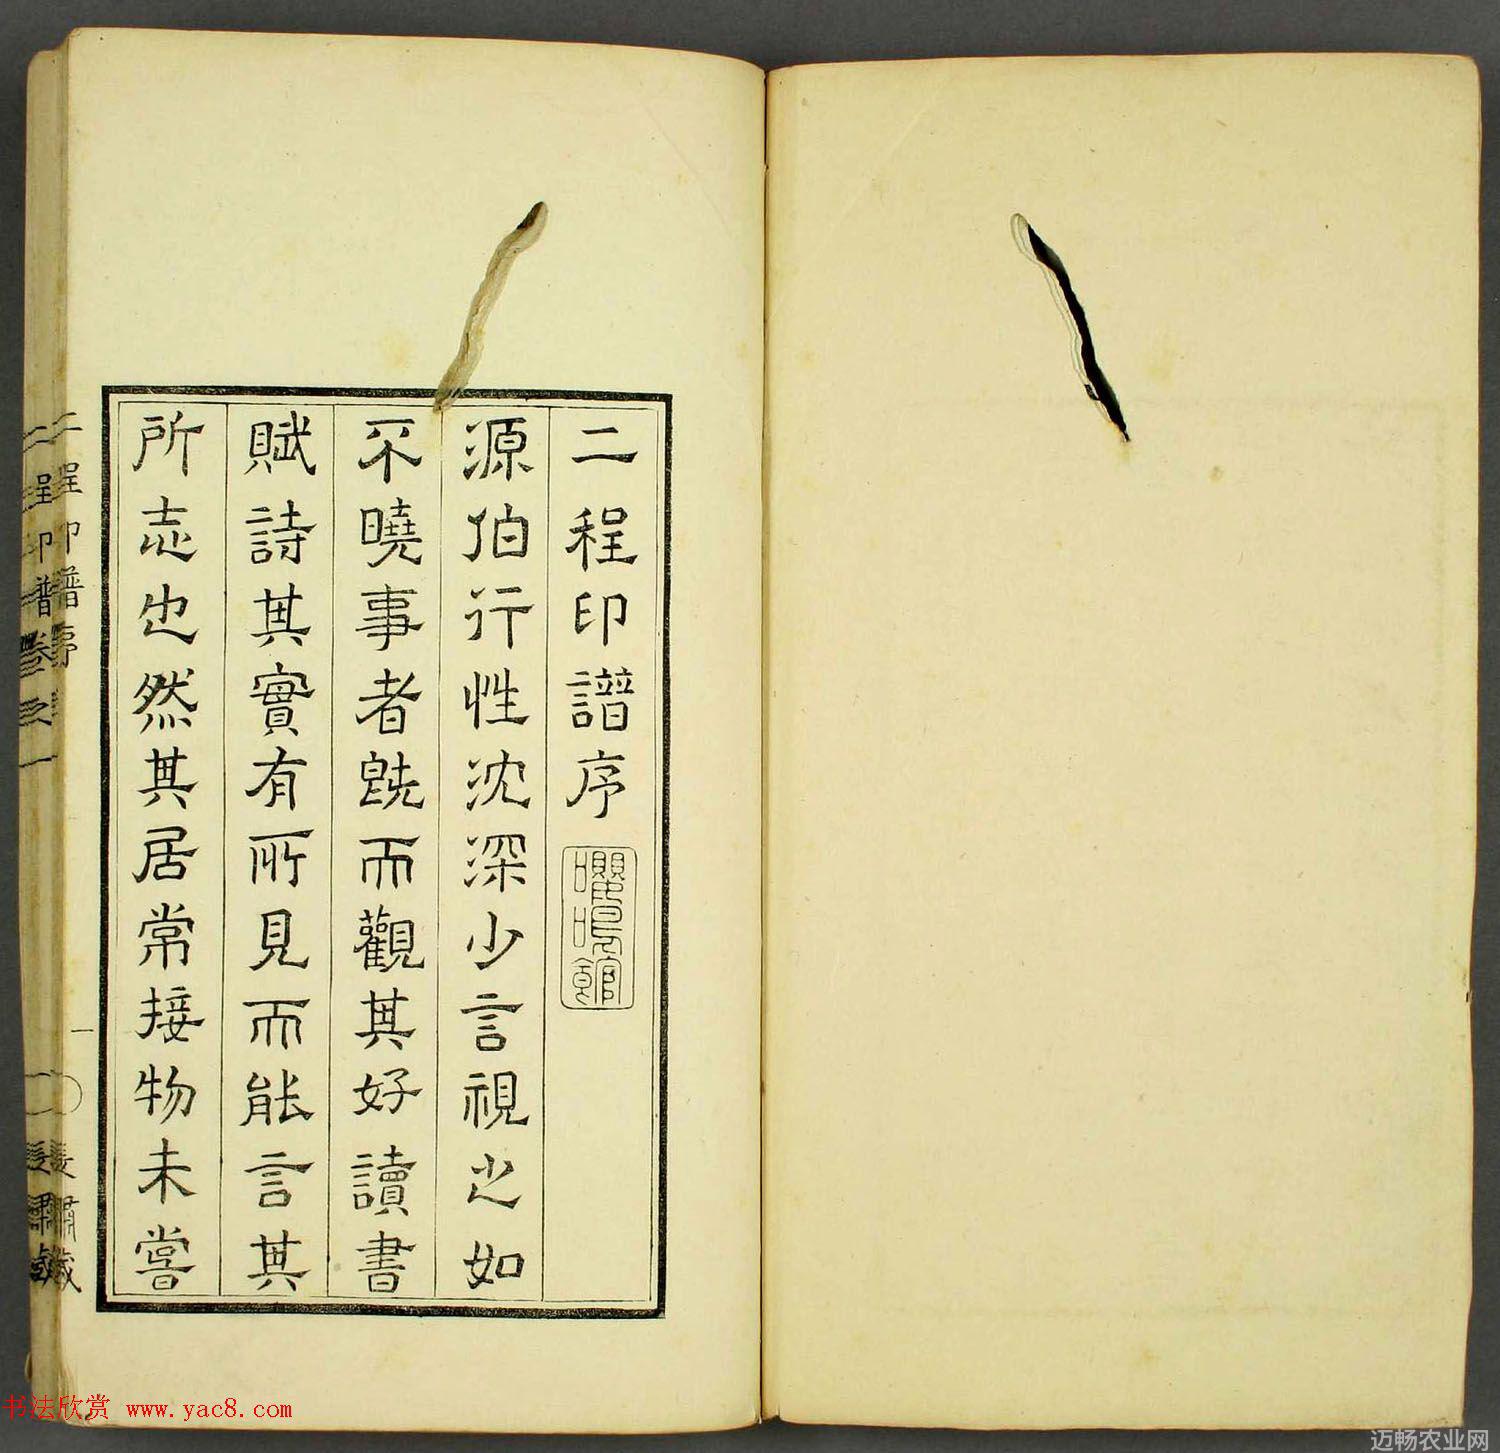 二程印譜序
嚶鳴館
源伯行性沈深少言視之如
不曉事者旣而觀其好讀書
賦詩其實有所見而能言其
所志也然其居常接物未嘗
二程印譜序
一
二程印譜卷之一
书法欣赏 www.yac8.com
迈畅农业网